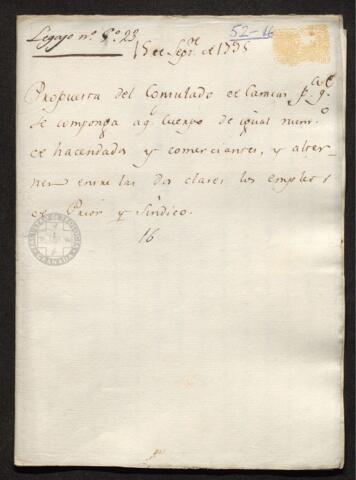 Legajo nº 6º 23.
52-16
15 de Sepre de 1795
Propuesta del Consulado de Caracas pª q.e
se componga aql Cuerpo de igual numº
de hacendados y comerciantes, y alter-
nen entre las dos clases los empleos
de Prior y Sindico.
16